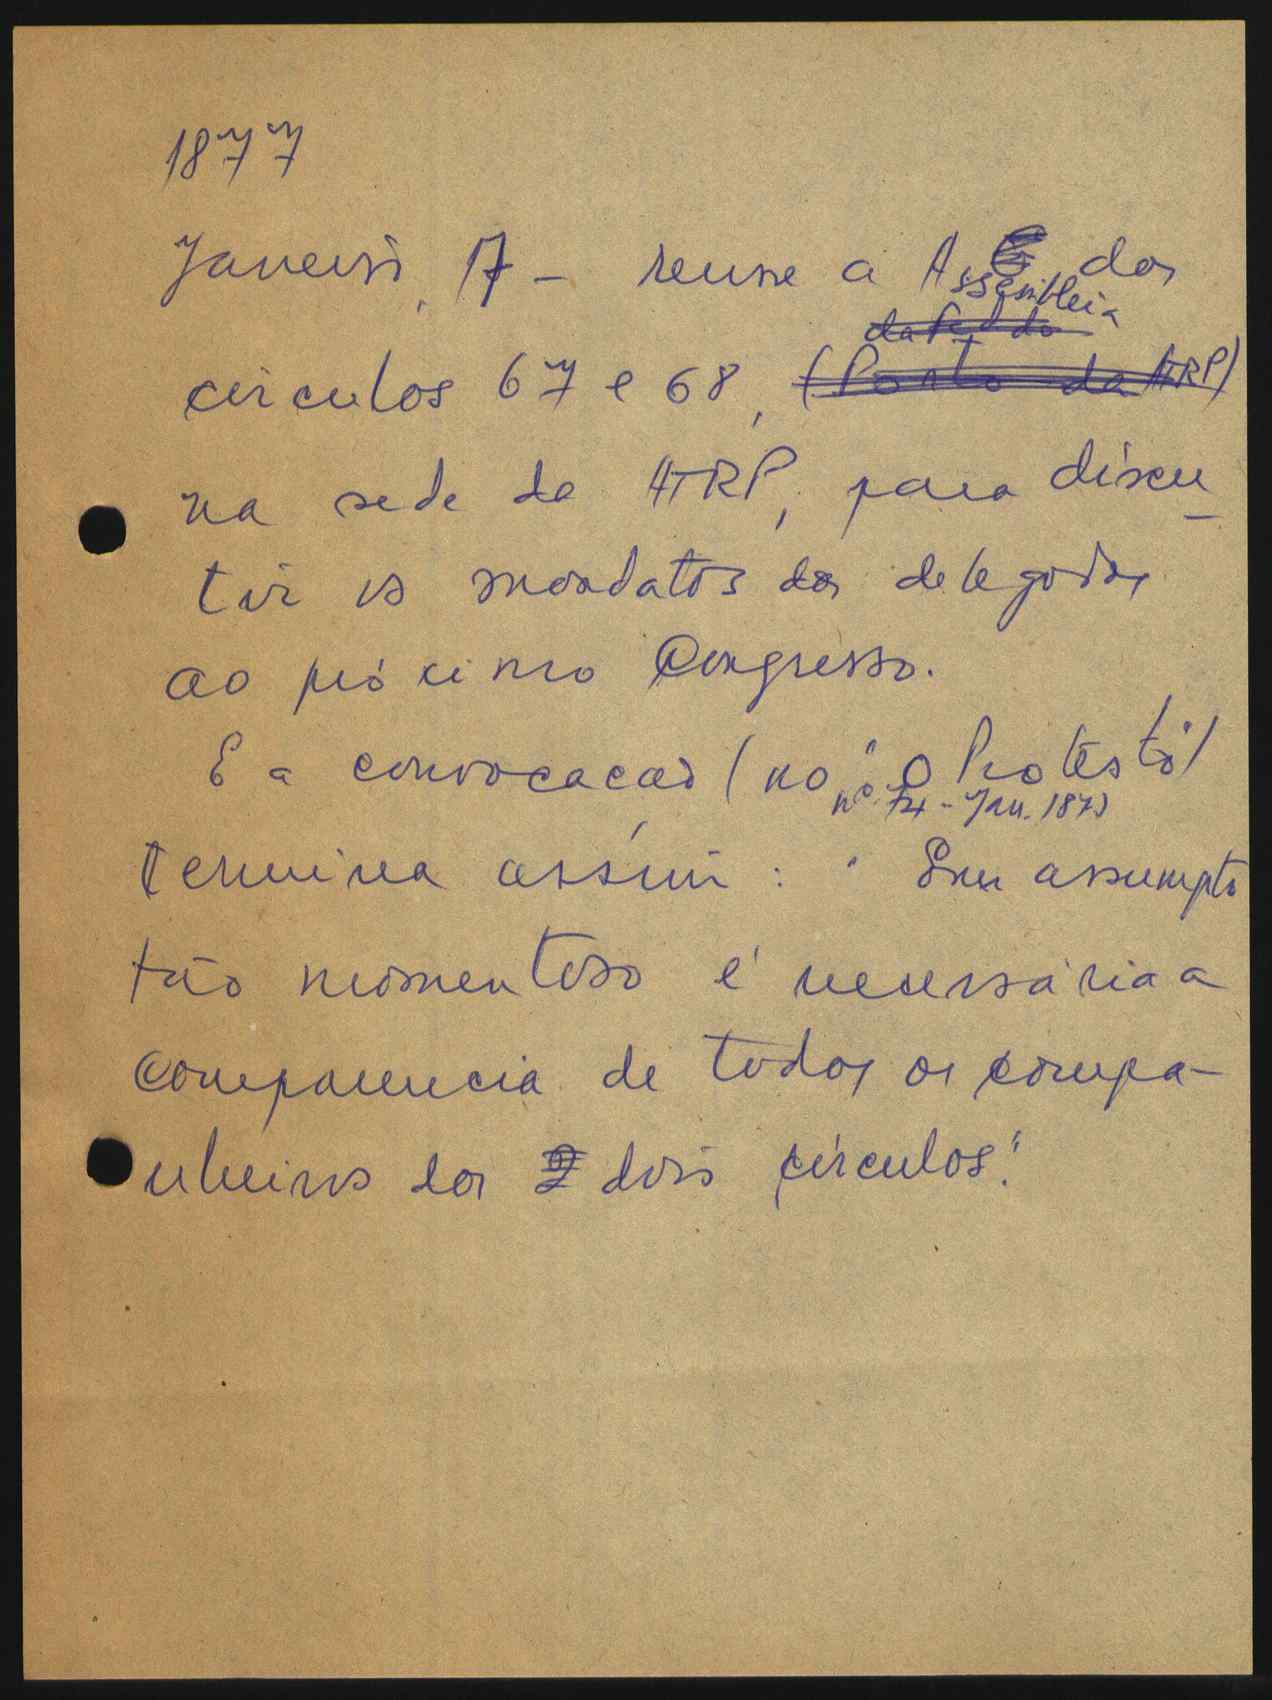 1877
Janeiro, 17 – reune a Assembleia dos
da Fed. do
circulos 67 e 68, (Porto da ATRP)
na sede da ATRP, para discu
tir os mandatos dos delegados
ao próximo Congresso.
E a convocação (no "O Protesto"
nº. 74 - Jan. 1877
termina assim: " Em assumpto
tão momentoso é necessária a
comparencia de todos os compa-
nheiros dos 2 dois círculos."